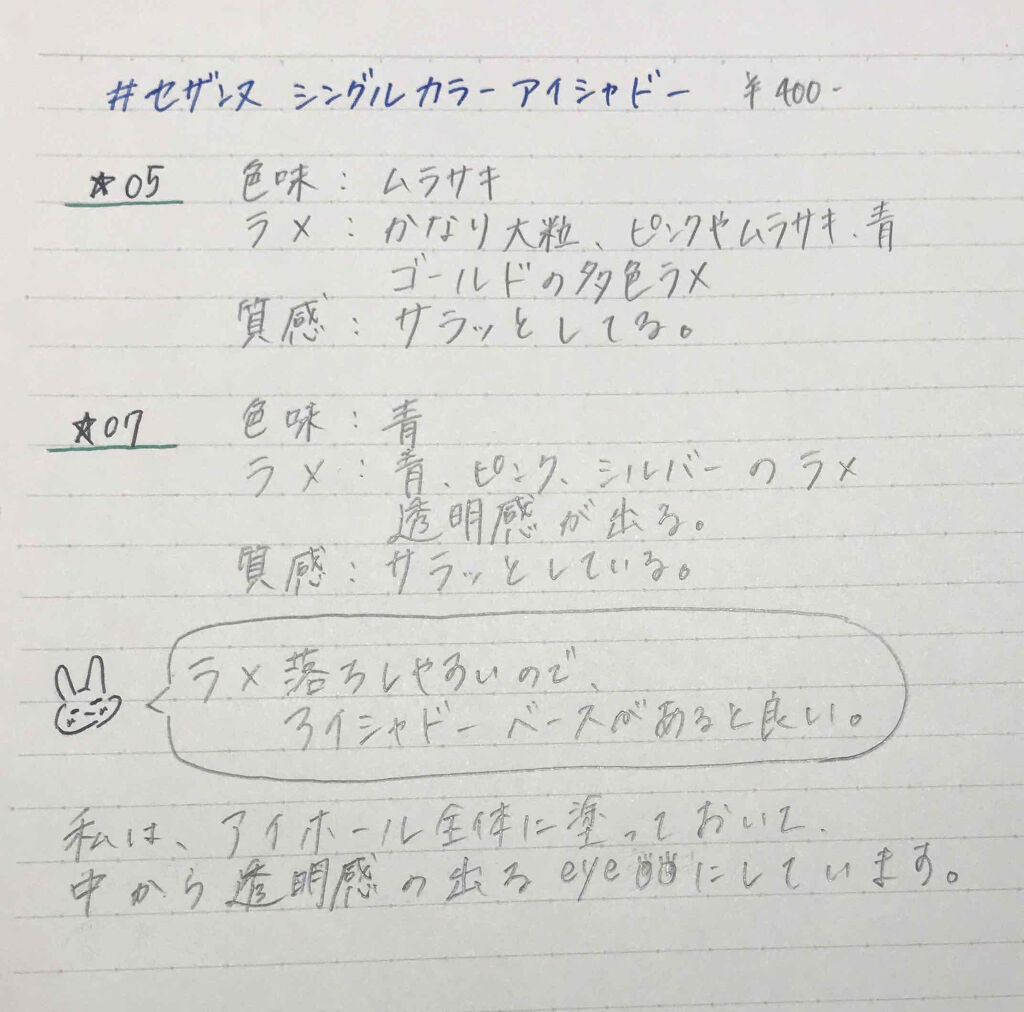 #セザンヌ シングルカラーアイシャドー ¥400-
☆05 色味: ムラサキ
ラメ: かなり大粒、ピンクやムラサキ、青
ゴールドの多色ラメ
質感: サラッとしてる。
☆07 色味: 青
ラメ: 青、ピンク、シルバーのラメ
透明感が出る。
質感: サラッとしている。
ラメ落ちしやすいので、
アイシャドーベースがあると良い。
私は、アイホール全体に塗っておいて、
中から透明感の出るeye👀にしています。